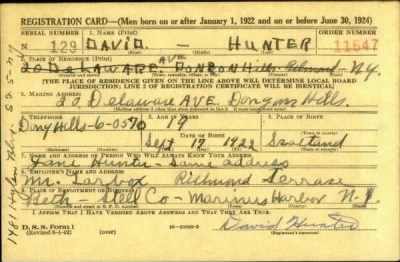 REGISTRATION CARD—(Men born on or after January 1, 1922 and on or before June 30, 1924)
SERIAL NUMBER 1. NAME (Print) ORDER NUMBER
129 DAVID. — HUNTER 11647
2. PLACE OF RESIDENCE (Print)
20 DELAWARE, AVE Richmond N.Y.
(THE PLACE OF RESIDENCE GIVEN ON THE LINE ABOVE WILL DETERMINE LOCAL BOARD
JURISDICTION; LINE 2 OF REGISTRATION CERTIFICATE WILL BE IDENTICAL)
3. MAILING ADDRESS
20, Delaware AVE. Dongan Hills.
4. TELEPHONE 5. AGE IN YEARS 6. PLACE OF BIRTH
Dong Hills-6-0570 19
Sept 17 1922 Scotland
7. NAME AND ADDRESS OF PERSON WHO WILL ALWAYS KNOW YOUR ADDRESS
Jane Hunter - Same address
8. EMPLOYER'S NAME AND ADDRESS
Mr. Tarbox Richmond Terrace
9. PLACE OF EMPLOYMENT OR BUSINESS
Beth - Steel Co - Mariners Harbor N.Y.
I AFFIRM THAT I HAVE VERIFIED ABOVE ANSWERS AND THAT THEY ARE TRUE.
D. S. S. Form 1
David Hunter
(Registrant's signature)